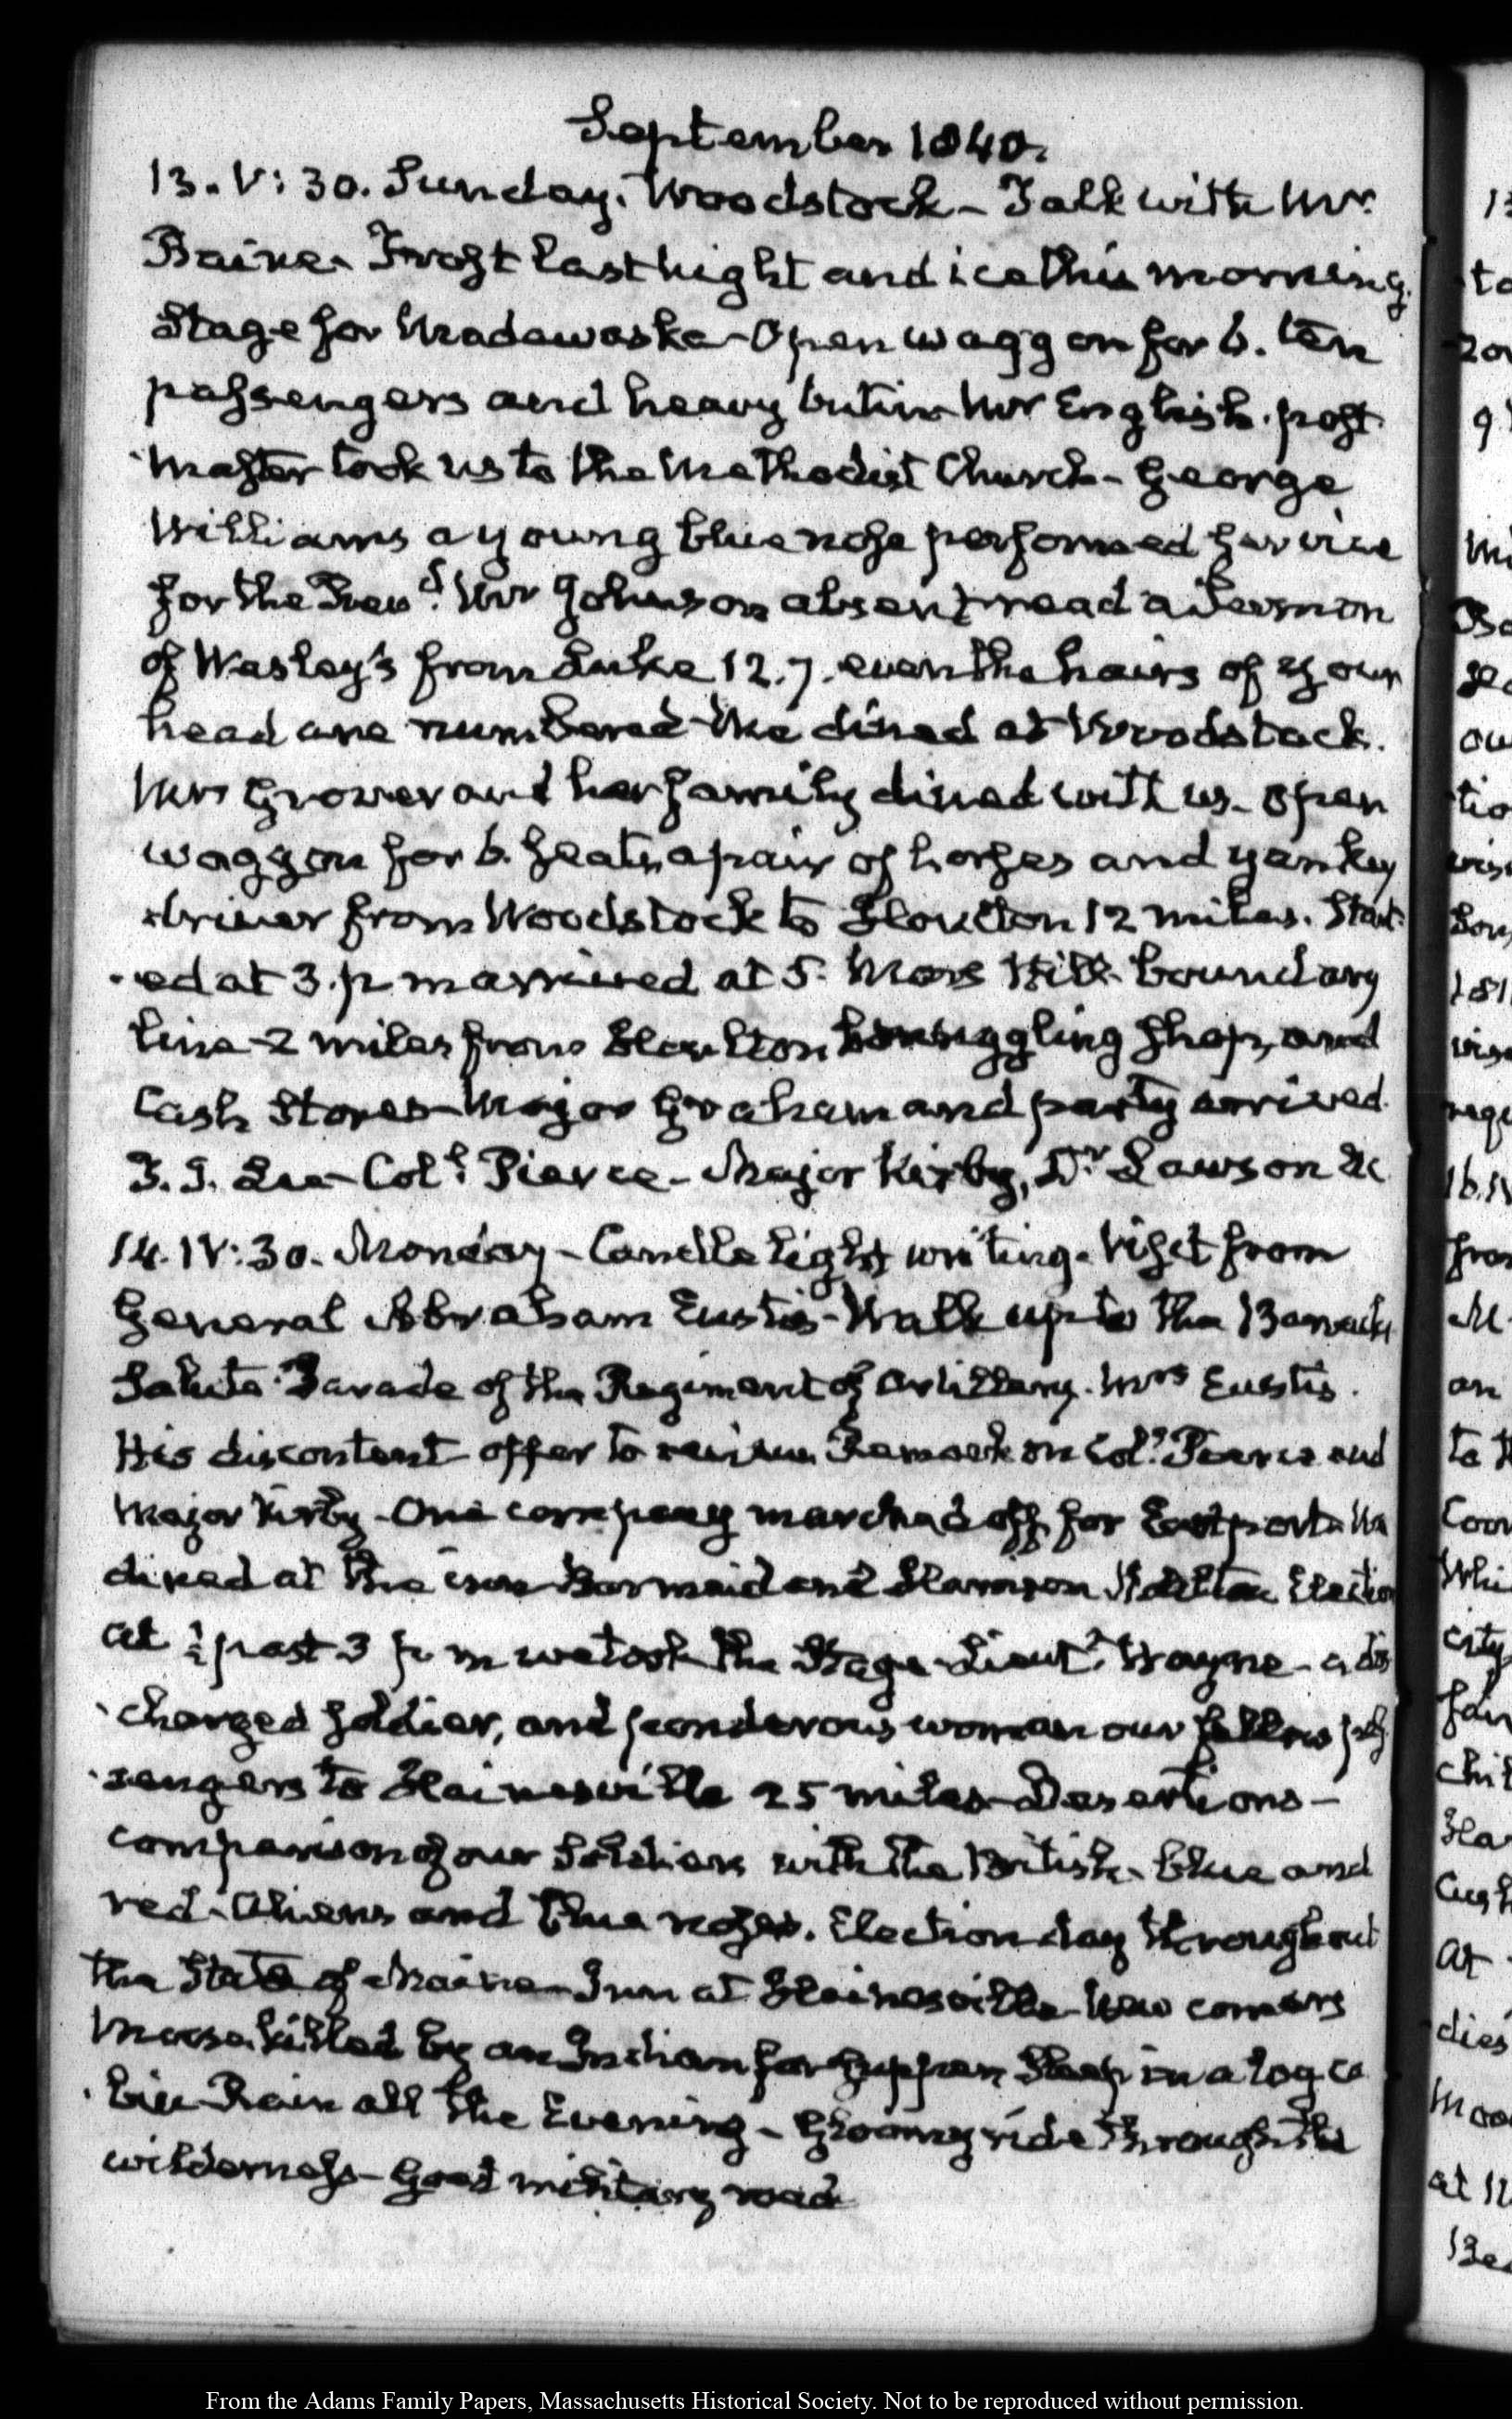 September 1840.
13. V:30. Sunday. Woodstock – Talk with Mr
Baine. Frost last night and ice this morning.
Stage for Madawaska – Open waggon for 6. ten
passengers and heavy Mr English. post
master took us to the Methodist Church – George
Williams a young blue nose performed service
for the Revd. Mr Johnson absent, read a Sermon
of Wesley's from Luke 12.7. even the hairs of your
head are numbered – We dined at Woodstock.
Mrs Grover and her family dined with us – open
waggon for 6. seats, a pair of horses and yankey
driver from Woodstock to Houlton 12 miles. Start-
ed at 3. p m arrived at 5. Mars Hill boundary
line – 2 miles from Houlton smuggling shop, and
Cash Stores – Major Graham and party arrived.
Coll. Pierce – Major Kirby, Dr Lawson &c
14. IV:30. Monday – Candle light writing. Visit from
General Abraham Eustis – Walk up to the Barracks
Salute. Parade of the Regiment of Artillery. Mrs Eustis.
His discontent offer to Remark on Coll. Pierce and
Major Kirby – One company marched off for Eastport. We
dined at the inn Barmaid and Election
at ½ past 3 p m we took the Stage – Lieut. Wayne – a dis-
charged soldier, and ponderous woman our fellow pas-
sengers to Hainesville 25 miles – Desertions –
comparison of our Soldiers with the British – blue and
red – Aliens and blue noses. Election day throughout
the State of Maine – Inn at Hainesville – New comers
Moose killed by an Indian for supper, Sleep in a log ca-
bin – Rain all the Evening – Gloomy ride through the
wilderness – Good military road
13
to
20
9.
From the Adams Family Papers, Massachusetts Historical Society. Not to be reproduced without permission.